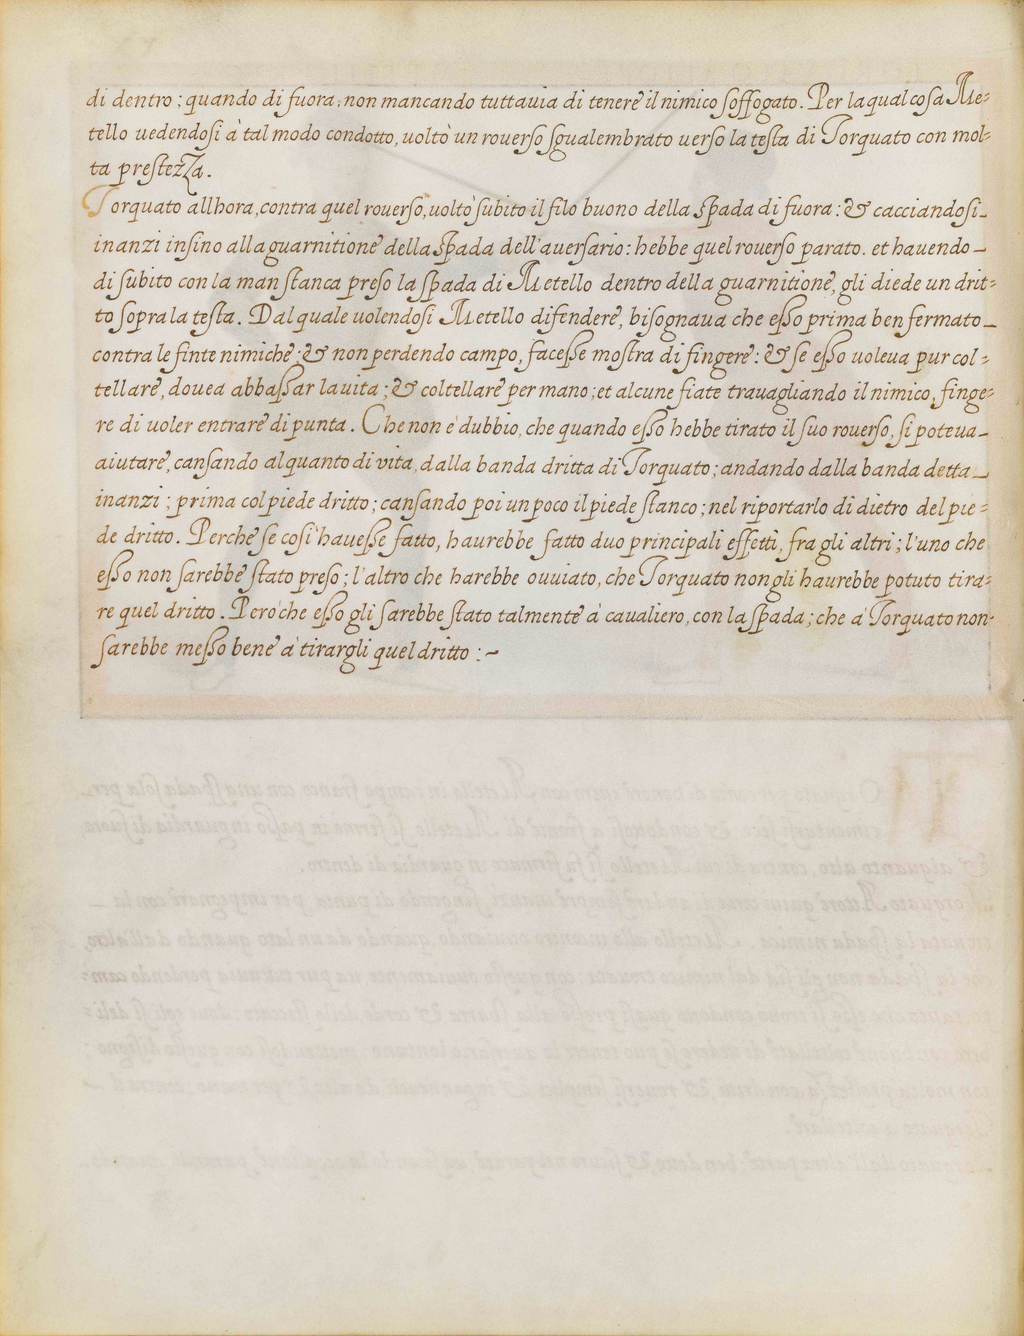 di dentro ; quando di fuora, non mancando tuttauia di tenere il nimico soffogato. Per la qual cosa Me-
tello uedendosi à tal modo condotto, uoltò un rouerso sgualembrato uerso la testa di Torquato con mol-
ta prestezza.
Torquato allhora, contra quel rouerso, uoltò subito il filo buono della spada di fuora : & cacciandosi
inanzi insino alla guarnitione della spada dell'auersario : hebbe quel rouerso parato. et hauendo
di subito con la man stanca preso la spada di Metello dentro della guarnitione, gli diede un drit-
to sopra la testa. Dal quale uolendosi Metello difendere, bisognaua che esso prima ben fermato
contra le finte nimiche ; & non perdendo campo, facesse mostra di fingere : & se esso uoleua pur col-
tellare, douea abbassar la uita ; & coltellare per mano ; et alcune fiate trauagliando il nimico, finge-
re di uoler entrare di punta. Che non è dubbio, che quando esso hebbe tirato il suo rouerso, si poteua
aiutare, cansando alquanto di uita dalla banda dritta di Torquato ; andando dalla banda detta
inanzi ; prima col piede dritto ; cansando poi un poco il piede stanco ; nel riportarlo di dietro del pie-
de dritto. Perche se così hauesse fatto, haurebbe fatto duo principali effetti, fra gli altri ; l'uno che
esso non sarebbe stato preso ; l'altro che harebbe ouuiato, che Torquato non gli haurebbe potuto tira-
re quel dritto. Però che esso gli sarebbe stato talmente à caualiero, con la spada ; che à Torquato non
sarebbe messo bene à tirargli quel dritto : ~